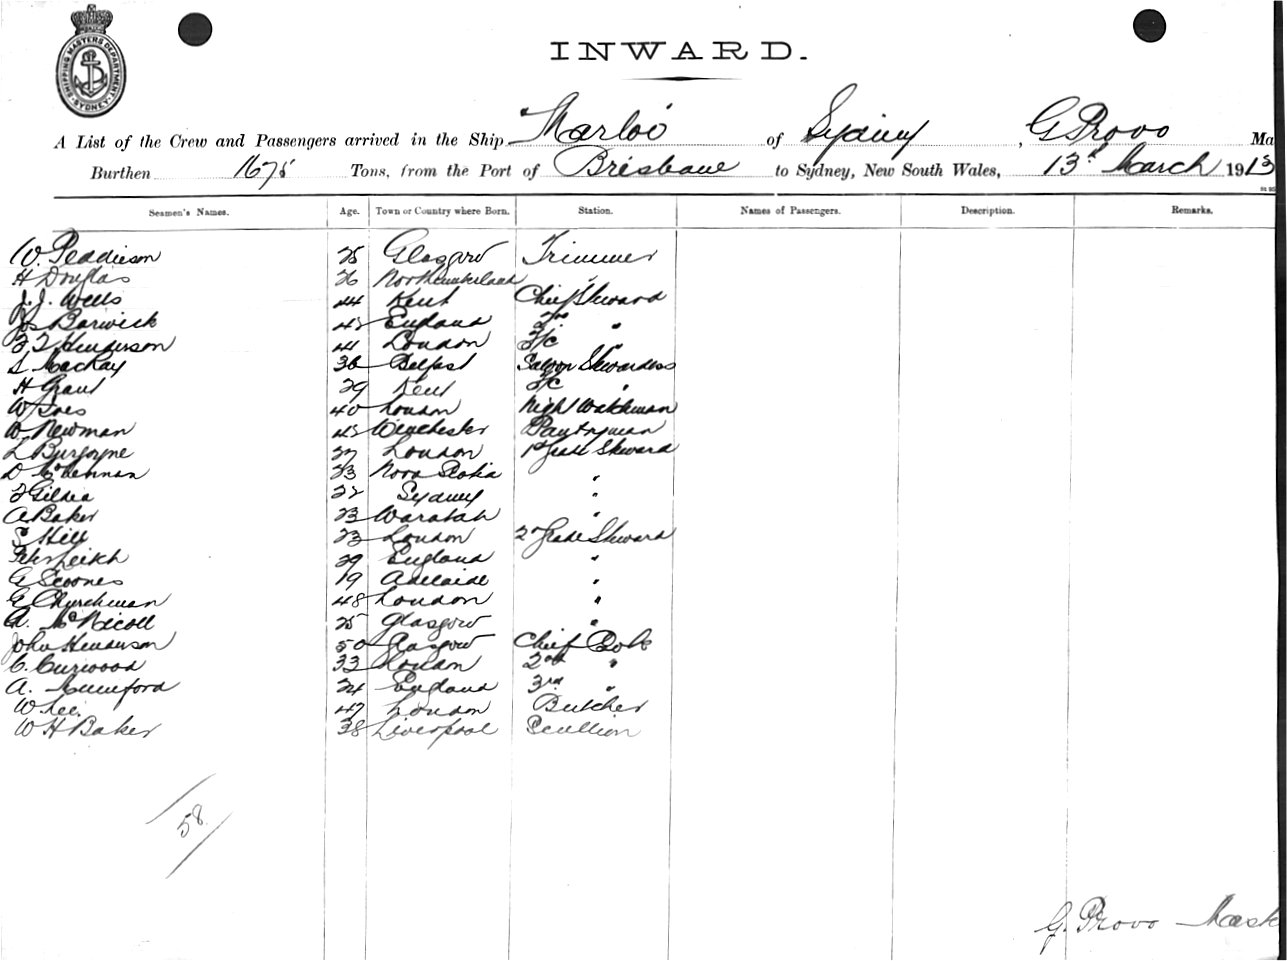 SHIPPING MASTERS DEPARTMENT SYDNEY
INWARD.
A List of the Crew and Passengers arrived in the Ship Marloo of Sydney, G Provo Ma
Burthen 1675 Tons, from the Port of Brisbane to Sydney, New South Wales, 13th March 1913
Seamen's Names. Age. Town or Country where Born. Station. Names of Passengers. Description. Remarks.
W. Peddieson 25 Glasgow Trimmer
H Douglas 26 Northumberland "
J. J. Wells 44 Kent Chief Steward
Jos Barwick England 2nd "
Henderson 41 London
S MacKay 36 Belfast Saloon Stewardess
H Grant 29 Kent "
W 40 London Night Watchman
W Newman Winchester Pantryman
L Burgoyne 27 London 1st Grade Steward
D McLennan 23 Nova Scotia "
Gildea 22 Sydney "
A Baker 23 Waratah "
E Hill 23 London 2nd Grade Steward
Peter Leikh 29 England "
G Scoones 19 Adelaide "
E Churchman 48 London "
A. McNicoll 25 Glasgow "
John Henderson 50 Glasgow Chief Cook
C. Curwood 33 London 2nd "
A. Mumford 24 England 3rd "
W Lee. 47 London Butcher
W H Baker 38 Liverpool Scullion
58
G. Provo Mast